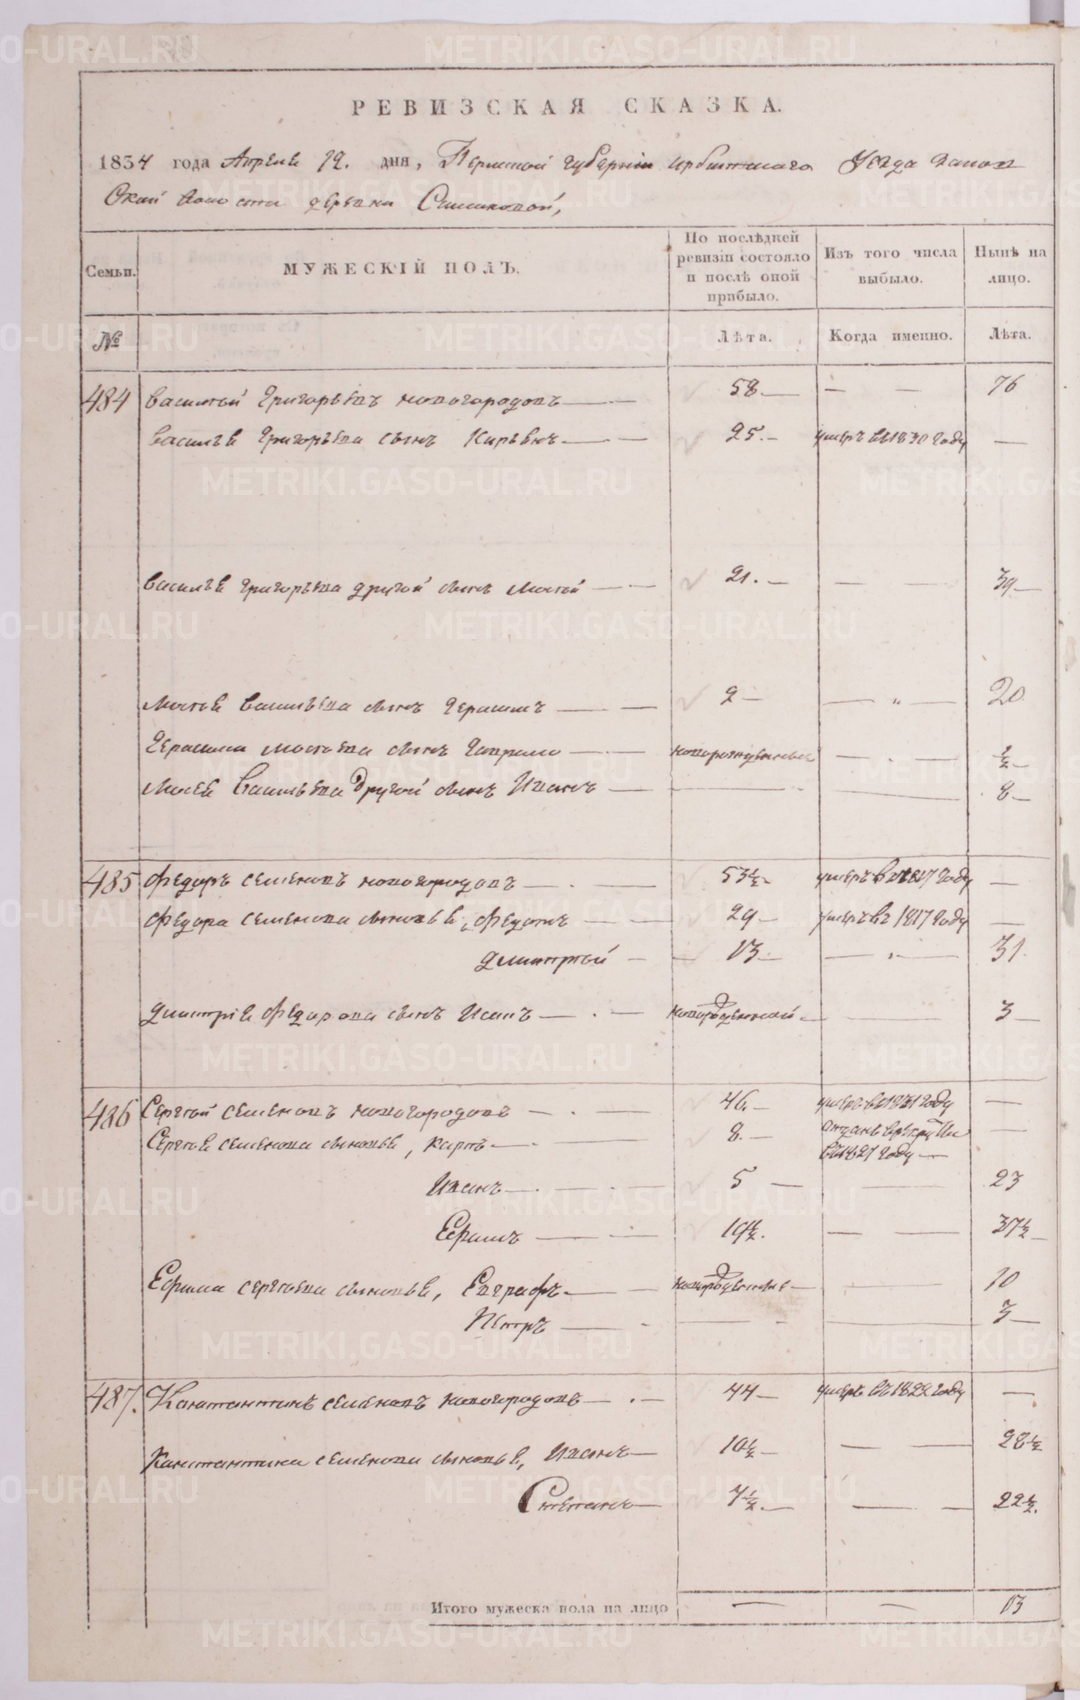 РЕВИЗСКАЯ СКАЗКА.
1834 года Апреля 12. дня, Пермской губернии Ирбитскаго Уезда
ской волости деревни
Семьи.
МУЖЕСКІЙ ПОЛЪ.
По послѣдней ревизіи состояло и послѣ оной прибыло.
Изъ того числа выбыло.
Нынѣ на лицо.
№
Лѣта.
Когда именно.
Лѣта.
484 Василей Григорьевъ Новогородовъ 58 — — 76
Василья Григорьева сынъ 25. умеръ въ 1830 году —
Василья Григорьева другой сынъ Мосей 21. — 39
Мосея Васильева сынъ Герасимъ 2 — „ — 20
Герасима Мосеева сынъ Гаврило новорожденный — . — ½
Мосея Васильева другой сынъ Иванъ — — 8
485 Федоръ Семеновъ Новогородовъ 53½ умеръ въ 1817 году —
Федора Семенова сыновья, Федотъ 29 умеръ въ 1817 году —
Дмитрей 13 — „ — 31
Дмитрія Федорова сынъ новорожденной — 3
486 Сергей Семеновъ Новогородовъ 46 умеръ въ 1821 году —
Сергея Семенова сыновья, Карпъ 8. отданъ в рекруты —
въ 1827 году
Иванъ 5 — 23
Ефимъ 19½. — — 37½
Ефима Сергеева сыновья, Евграфъ новорожденные — 10
Петръ — — 3
487. Констентинъ Семеновъ Новогородовъ 44 умеръ въ 1822 году —
Констентина Семенова сыновья, Иванъ 10½ — 28½
Степанъ 4½. — — 22½.
Итого мужеска пола на лицо — — 13
METRIKI.GASO-URAL.RU